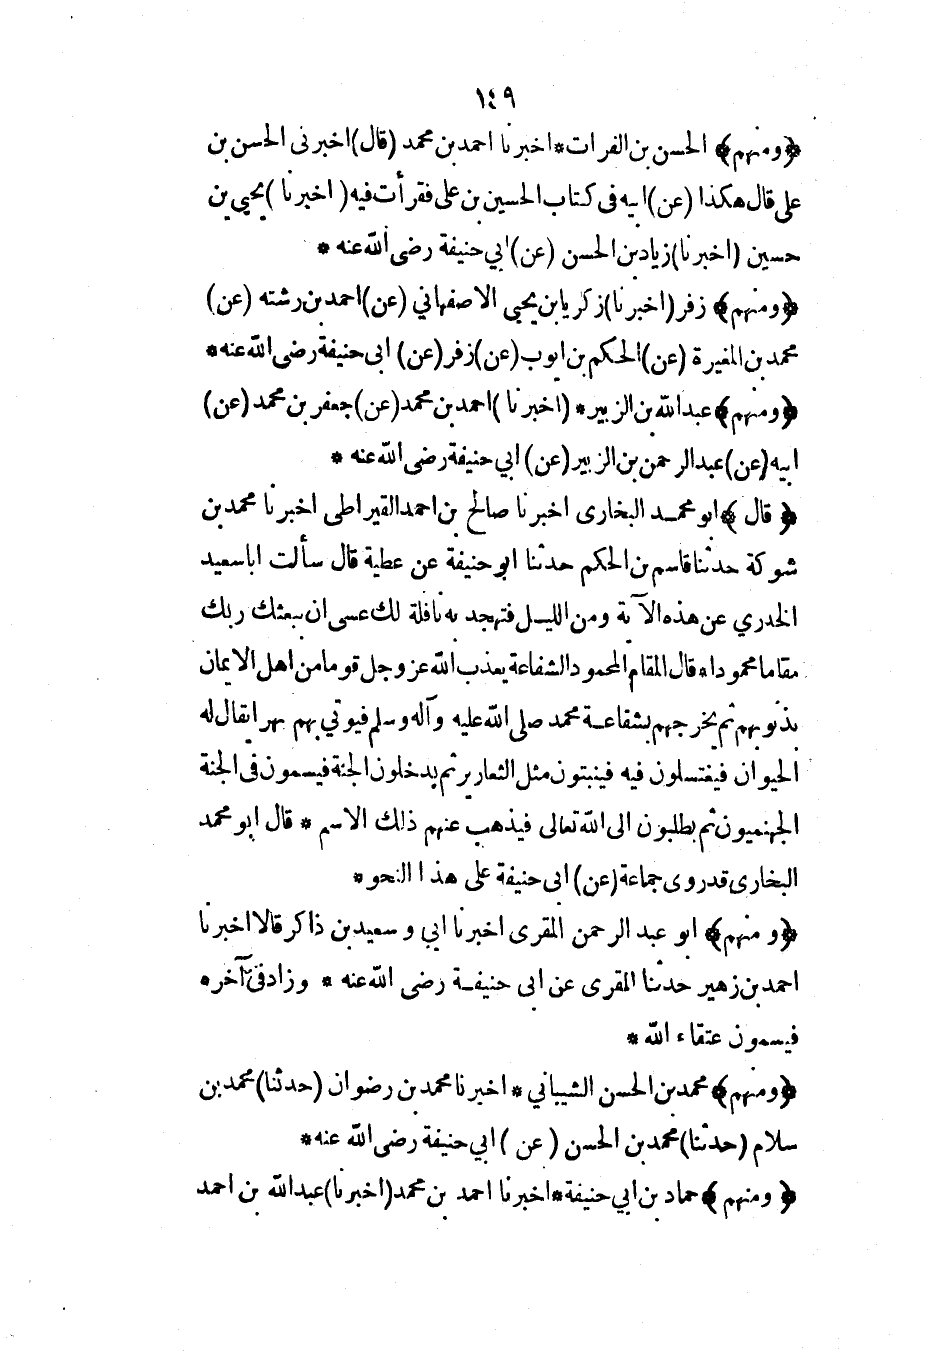 ١٤٩
﴿ومنهم﴾ الحسن بن الفرات * اخبرنا احمد بن محمد (قال) اخبرنى الحسن بن
على قال هكذا (عن) ابيه فى كتاب الحسين بن على فقرأت فيه (اخبرنا) يحيي بن
حسين (اخبرنا) زياد بن الحسن (عن) ابي حنيفة رضى الله عنه *
﴿ومنهم﴾ زفر (اخبرنا) زكريا بن يحيى الاصفهاني (عن) احمد بن رشته (عن)
محمد بن المغيرة (عن) الحكم بن ايوب (عن) زفر (عن) ابى حنيفة رضى الله عنه *
﴿ومنهم﴾ عبدالله بن الزبير * (اخبرنا) احمد بن محمد (عن) جعفر بن محمد (عن)
ابيه (عن) عبدالرحمن بن الزبير (عن) ابي حنيفة رضى الله عنه *
﴿قال﴾ ابو محمد البخارى اخبرنا صالح بن احمد القيراطى اخبرنا محمد بن
شوكة حدثنا قاسم بن الحكم حدثنا ابو حنيفة عن عطية قال سألت اباسعيد
الخدري عن هذه الآية ومن الليل فتهجد به نافلة لك عسى ان يبعثك ربك
مقاما محمودا * قال المقام المحمود الشفاعة يعذب الله عز وجل قوما من اهل الايمان
بذنوبهم ثم يخرجهم بشفاعة محمد صلى الله عليه وآله وسلم فيوتي بهم نهرا يقال له
الحيوان فيغتسلون فيه فينبتون مثل الثعارير ثم يدخلون الجنة فيسمون فى الجنة
الجهنميون ثم يطلبون الى الله تعالى فيذهب عنهم ذلك الاسم * قال ابو محمد
البخارى قد روى جماعة (عن) ابى حنيفة على هذا النحو *
﴿ومنهم﴾ ابو عبد الرحمن المقرى اخبرنا ابي وسعيد بن ذاكر قالا اخبرنا
احمد بن زهير حدثنا المقرى عن ابى حنيفة رضى الله عنه * وزاد فى آخره
فيسمون عتقاء الله *
﴿ومنهم﴾ محمد بن الحسن الشيباني * اخبرنا محمد بن رضوان (حدثنا) محمد بن
سلام (حدثنا) محمد بن الحسن (عن) ابي حنيفة رضى الله عنه *
﴿ومنهم﴾ حماد بن ابي حنيفة * اخبرنا احمد بن محمد (اخبرنا) عبدالله بن احمد